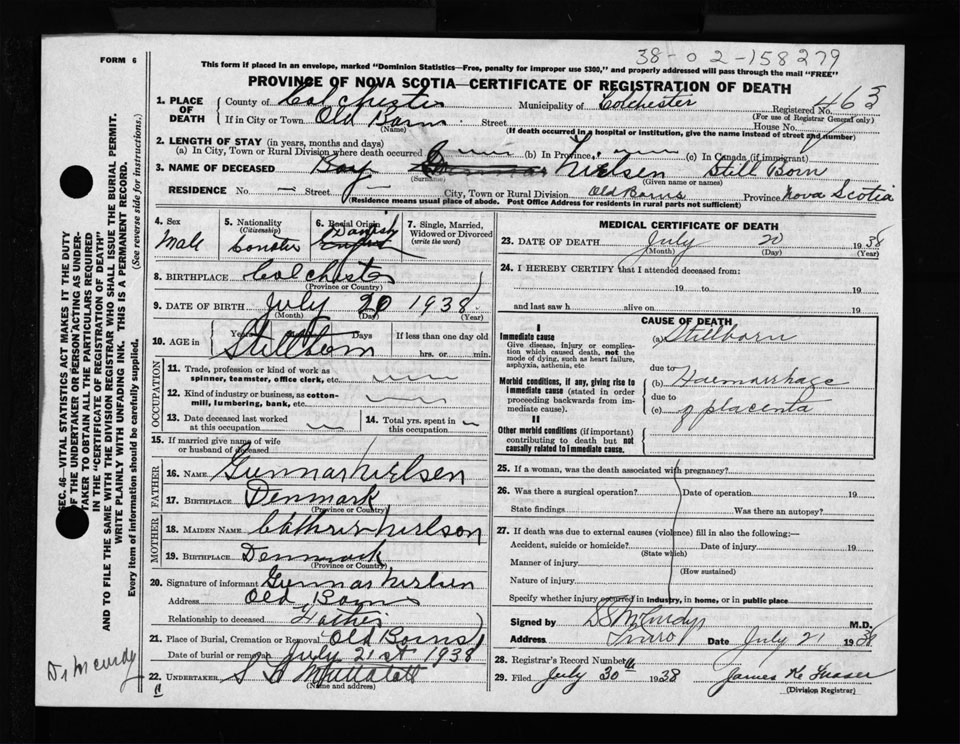 38-02-158279
FORM 6
This form if placed in an envelope, marked "Dominion Statistics—Free, penalty for improper use $300," and properly addressed will pass through the mail "FREE"
PROVINCE OF NOVA SCOTIA—CERTIFICATE OF REGISTRATION OF DEATH
1. PLACE OF DEATH County of Colchester Municipality of Colchester Registered No. 463
(For use of Registrar General only)
If in City or Town Old Barns Street House No.
(Name) (If death occurred in a hospital or institution, give the name instead of street and number)
2. LENGTH OF STAY (in years, months and days)
(a) In City, Town or Rural Division where death occurred (b) In Province (c) In Canada (if immigrant)
3. NAME OF DECEASED Boy Nielsen Still Born
(Surname) (Given name or names)
RESIDENCE No. — Street City, Town or Rural Division Old Barns Province Nova Scotia
(Residence means usual place of abode. Post Office Address for residents in rural parts not sufficient)
4. Sex Male
5. Nationality (Citizenship)
6. Racial Origin Danish English
7. Single, Married, Widowed or Divorced (write the word)
8. BIRTHPLACE Colchester
(Province or Country)
9. DATE OF BIRTH July 20 1938
(Month) (Day) (Year)
10. AGE in Years Days If less than one day old
Stillborn hrs. or min.
OCCUPATION
11. Trade, profession or kind of work as spinner, teamster, office clerk, etc.
12. Kind of industry or business, as cotton-mill, lumbering, bank, etc.
13. Date deceased last worked at this occupation
14. Total yrs. spent in this occupation
15. If married give name of wife or husband of deceased
FATHER
16. NAME Gunnar Nielsen
17. BIRTHPLACE Denmark
(Province or Country)
MOTHER
18. MAIDEN NAME Nielson
19. BIRTHPLACE Denmark
(Province or Country)
20. Signature of informant Gunnar Nielsen
Address Old Barns
Relationship to deceased Father
21. Place of Burial, Cremation or Removal Old Barns
Date of burial or removal July 21st 1938
22. UNDERTAKER
(Name and address)
MEDICAL CERTIFICATE OF DEATH
23. DATE OF DEATH July 20 1938
(Month) (Day) (Year)
24. I HEREBY CERTIFY that I attended deceased from:
19 to 19
and last saw h alive on 19
CAUSE OF DEATH
I
Immediate cause (a) Stillborn
Give disease, injury or complication which caused death, not the mode of dying, such as heart failure, asphyxia, asthenia, etc.
due to
Morbid conditions, if any, giving rise to immediate cause (stated in order proceeding backwards from immediate cause). (b) Haemorrhage
due to
(c) of placenta
II
Other morbid conditions (if important) contributing to death but not causally related to immediate cause.
25. If a woman, was the death associated with pregnancy?
26. Was there a surgical operation? Date of operation 19
State findings Was there an autopsy?
27. If death was due to external causes (violence) fill in also the following:—
Accident, suicide or homicide? Date of injury 19
(State which)
Manner of injury
(How sustained)
Nature of injury
Specify whether injury occurred in industry, in home, or in public place
Signed by S S McCurdy M.D.
Address Truro Date July 21 1938
28. Registrar's Record Number
29. Filed July 30th 1938 James K Fraser
(Division Registrar)
SEC. 46—VITAL STATISTICS ACT MAKES IT THE DUTY
OF THE UNDERTAKER OR PERSON ACTING AS UNDER-
TAKER TO OBTAIN ALL THE PARTICULARS REQUIRED
IN THE "CERTIFICATE OF REGISTRATION OF DEATH"
AND TO FILE THE SAME WITH THE DIVISION REGISTRAR WHO SHALL ISSUE THE BURIAL PERMIT.
WRITE PLAINLY WITH UNFADING INK. THIS IS A PERMANENT RECORD.
Every item of information should be carefully supplied. (See reverse side for instructions.)
Dr McCurdy